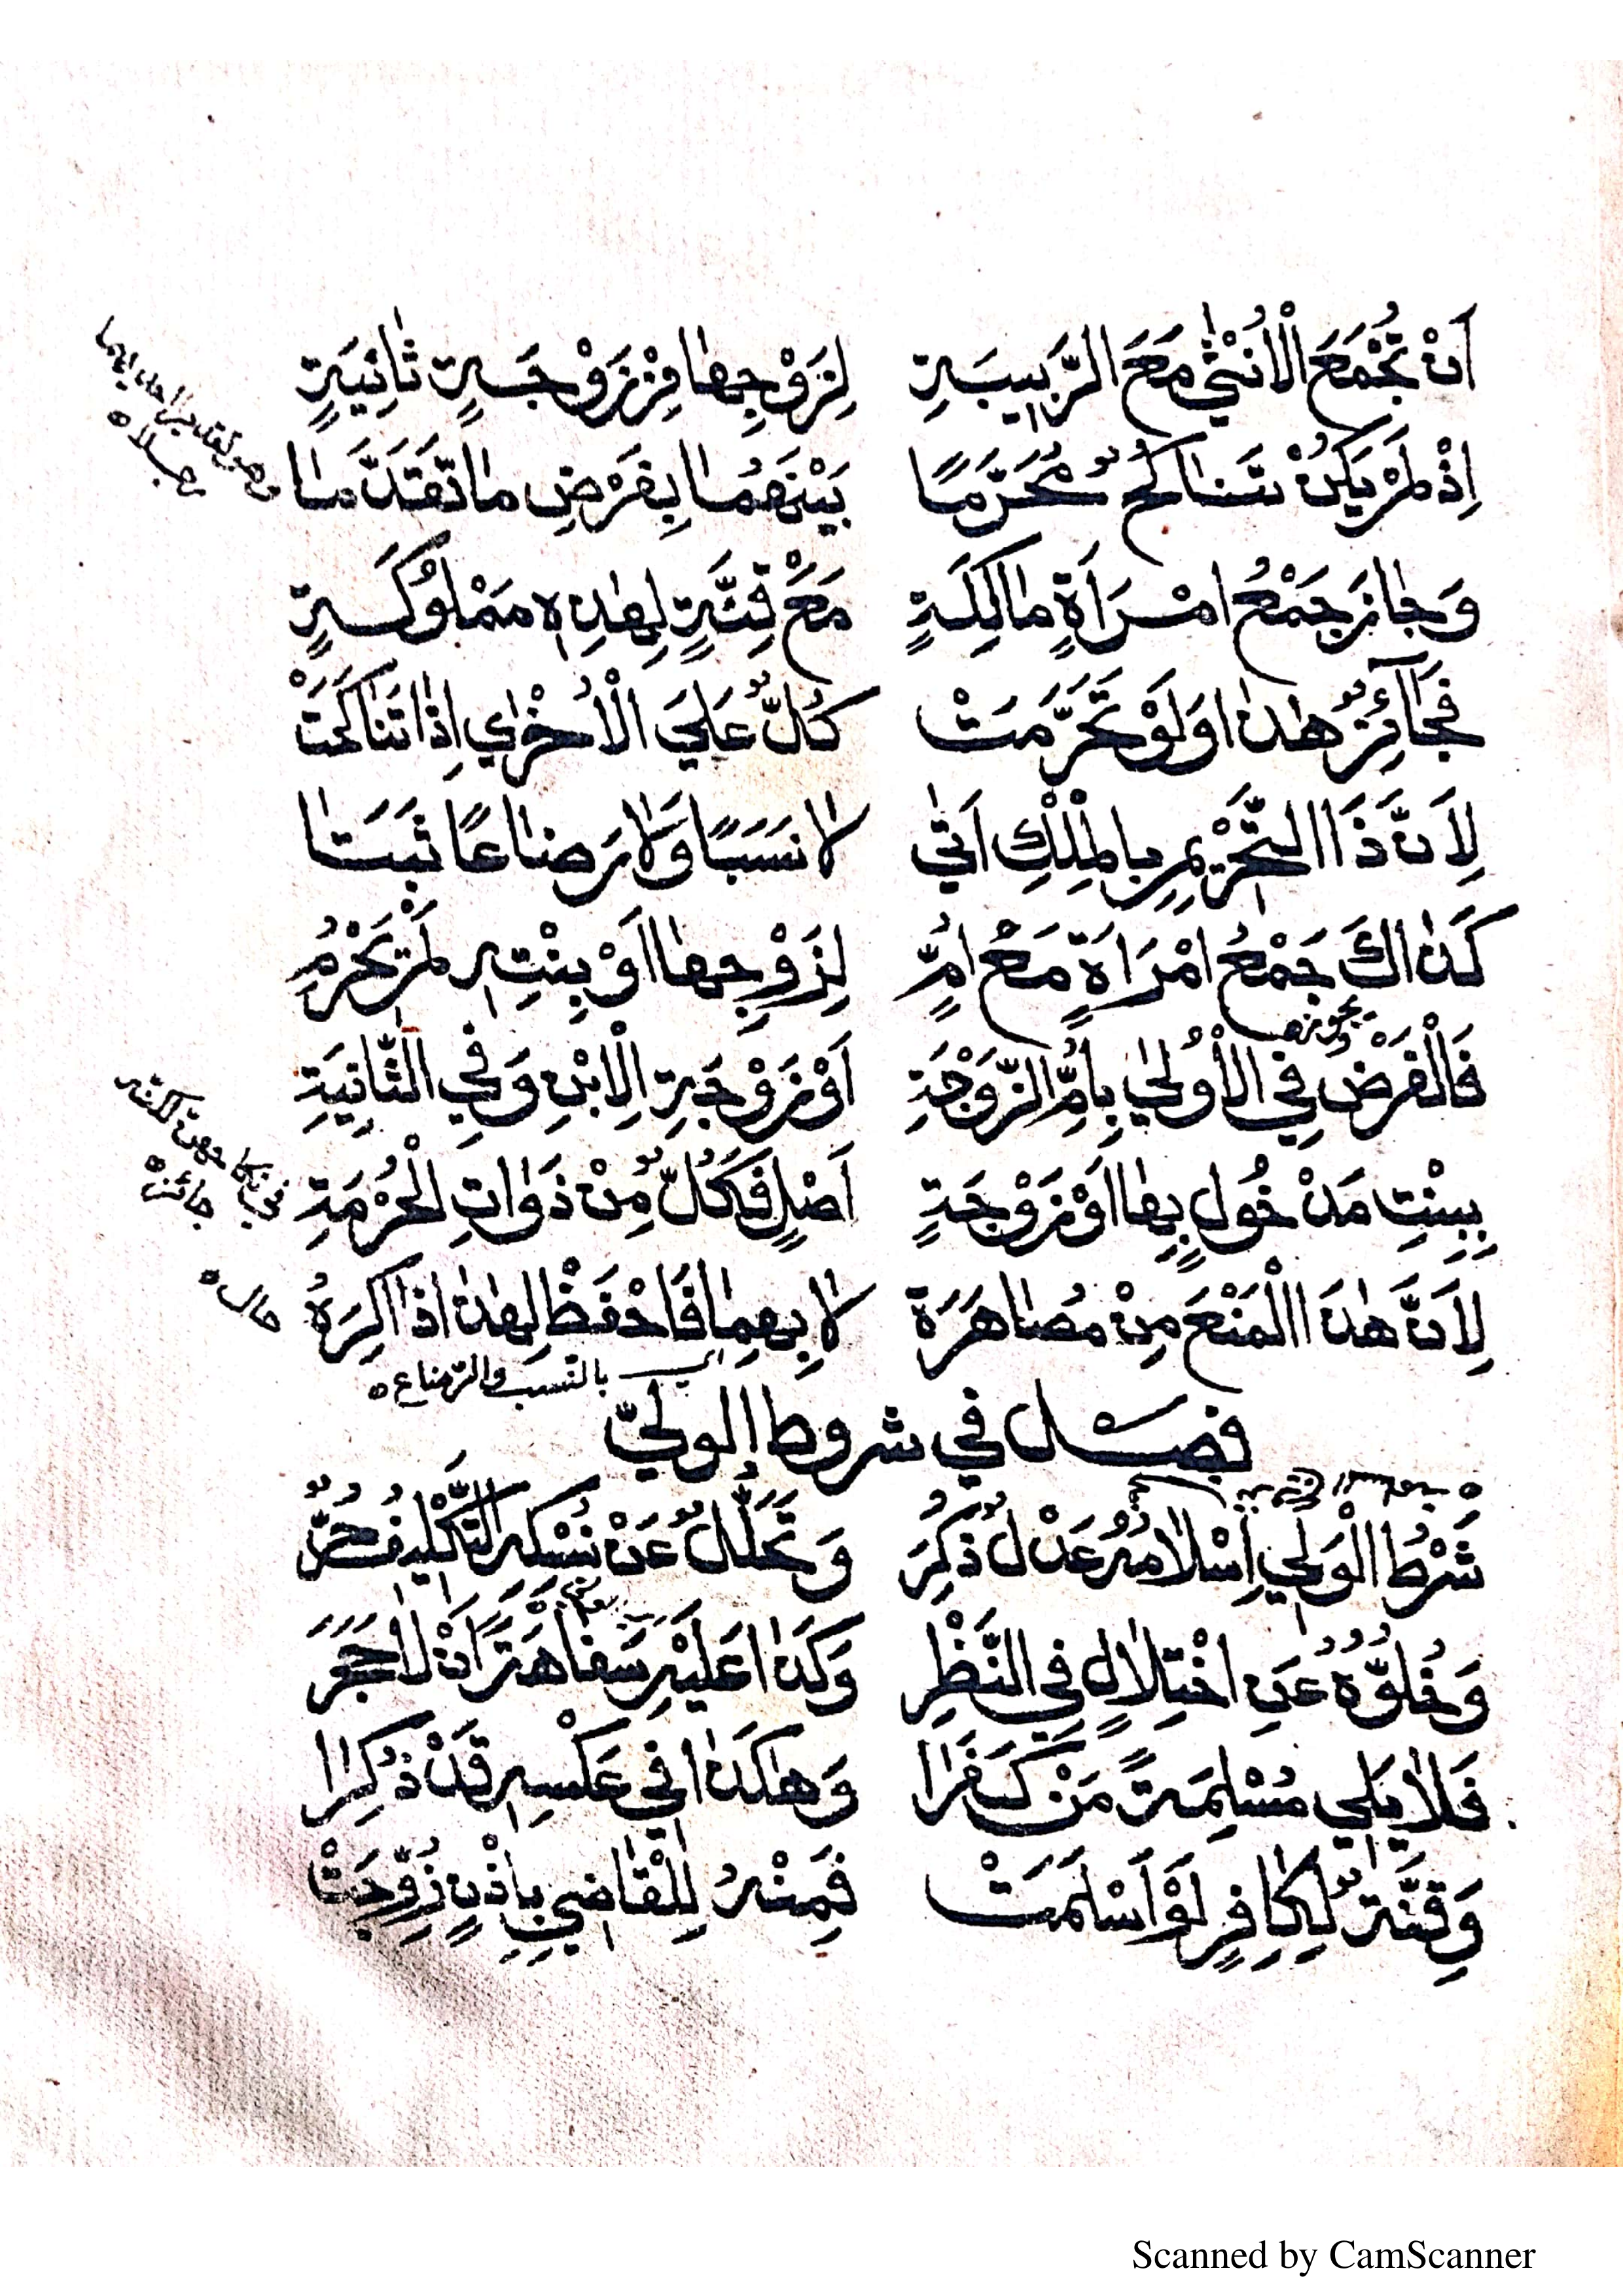 اَنْ تُجْمَعَ الْاُنْثٰي مَعَ الرَّبِيبَةِ لِزَوْجِهَا مِنْ زَوْجَةٍ ثَانِيَةٍ
اِذْ لَمْ يَكُنْ تَنَاكُحٌ مُحَرَّمًا بَيْنَهُمَا بِفَرْضِ مَا تَقَدَّمَا
وَجَازَ جَمْعُ امْرَاَةٍ مَالِكَةٍ مَعْ قِنَّةٍ لِهٰذِهِ مَمْلُوْكَةٍ
فَجَآئِزٌ هٰذَا وَلَوْ تَحَرَّمَتْ كُلٌّ عَلَيَ الْاُخْرٰي اِذَا تَنَاكَحَتْ
لِاَنَّ ذَا التَّحْرِيْمِ بِالْمِلْكِ اَتٰي لَا نَسَبًا وَلَا رَضَاعًا ثَبَتَا
كَذَاكَ جَمْعُ امْرَاَةٍ مَعْ اُمٍّ لِزَوْجِهَا اَوْ بِنْتِهِ لَمْ يَحْرُمُ
فَالْفَرْضُ فِي الْاُوْلٰي بِاُمِّ الزَّوْجَةِ اَوْ زَوْجَةِ الْاِبْنِ وَفِي الثَّانِيَةِ
بِبِنْتِ مَدْخُولٍ بِهَا اَوْ زَوْجَةٍ اَصْلٍ فَكُلٌّ مِنْ ذَوَاتِ الْحُرْمَةِ
جائز
لِاَنَّ هٰذَا الْمَنْعَ مِنْ مُصَاهَرَةْ لَا بِهِمَا فَاحْفَظْ لِهٰذَا ذَاكِرَهْ
حال
اي بالنسب والرضاع
فصل في شروط الولي
شَرْطُ الْوَلِي اِسْلَامُهُ عَدْلٌ ذُكِرَ وَتَحَلُّلٌ عَنْ نُسْكِهِ التَّكْلِيفُ حُرٌّ
وَخُلُوُّهُ عَنِ اخْتِلَالٍ فِي النَّظْرِ وَكَذَا عَلَيْهِ سَفَاهَةً اَنْ لَا حَجَرَ
فَلَا يَلِي مُسْلِمَةً مَنْ كَفَرَا وَهٰكَذَا فِي عَكْسِهِ قَدْ ذُكِرَا
وَقِنَّةٌ لِكَافِرٍ لَوْ اَسْلَمَتْ فَمِنْهُ لِلْقَاضِي بِاِذْنٍ زُوِّجَتْ
Scanned by CamScanner